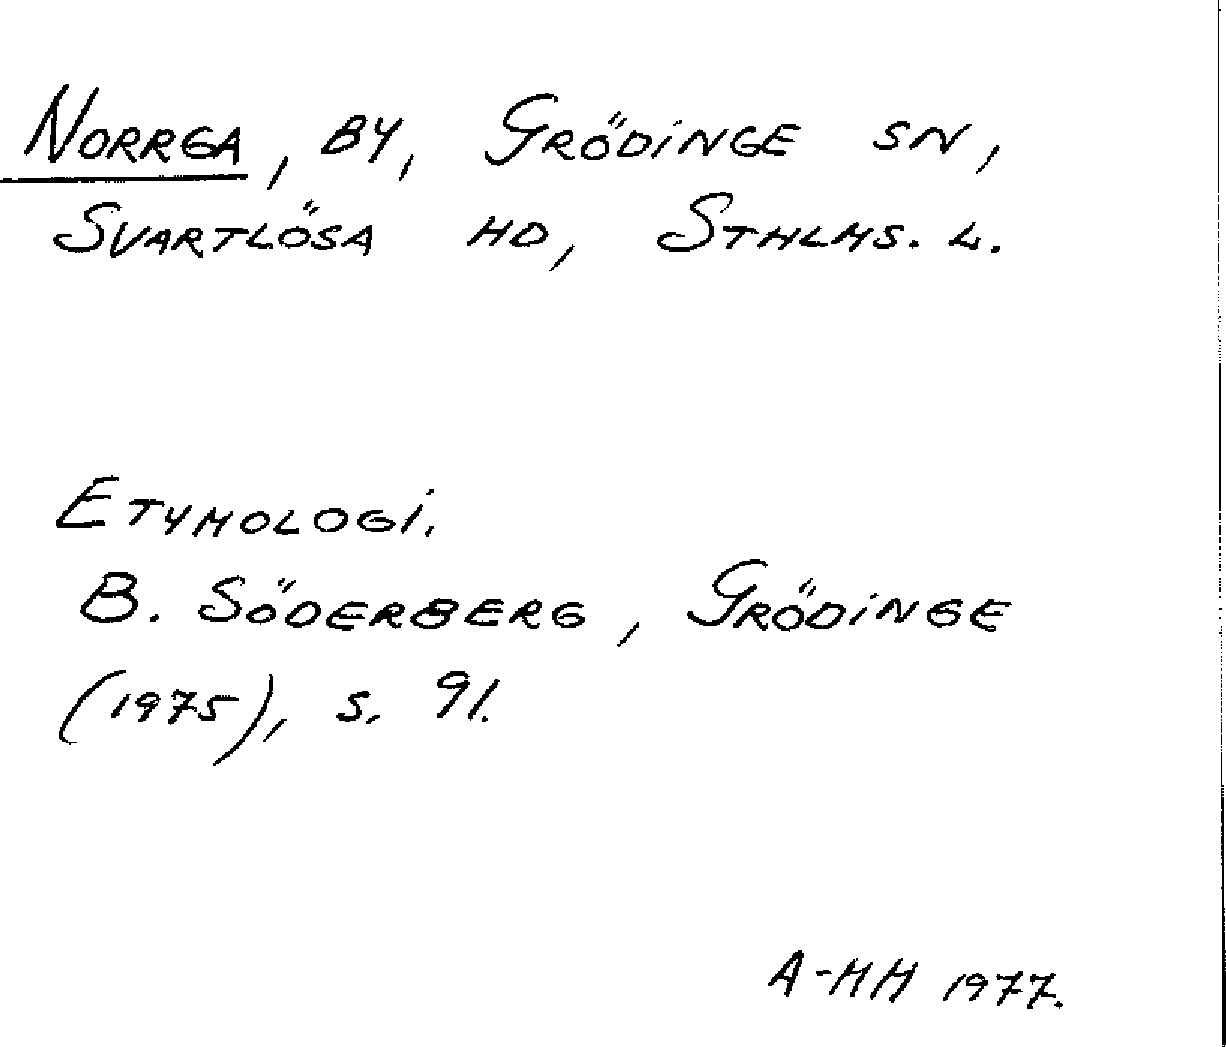 NORRGA, BY, GRÖDINGE SN,
SVARTLÖSA HD, STHLMS. L.
ETYMOLOGI.
B. SÖDERBERG, GRÖDINGE
(1975), S. 91.
A-MH 1977.